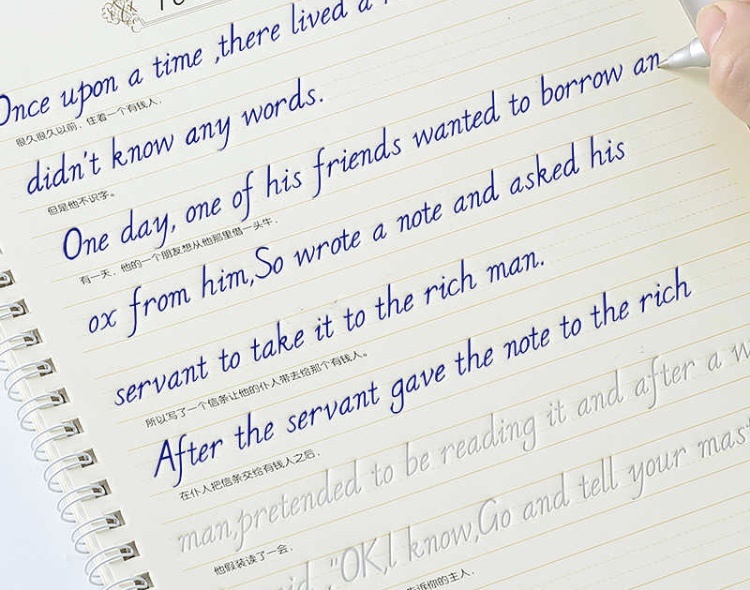 Once upon a time ,there lived a
很久很久以前，住着一个有钱人，
didn't know any words.
但是他不识字。
One day, one of his friends wanted to borrow an
有一天，他的一个朋友想从他那里借一头牛，
ox from him,So wrote a note and asked his
servant to take it to the rich man.
所以写了一个信条让他的仆人带去给那个有钱人。
After the servant gave the note to the rich
在仆人把信条交给有钱人之后，
man,pretended to be reading it and after a w
他假装读了一会，
"OK,l know,Go and tell your mast
告诉你的主人，